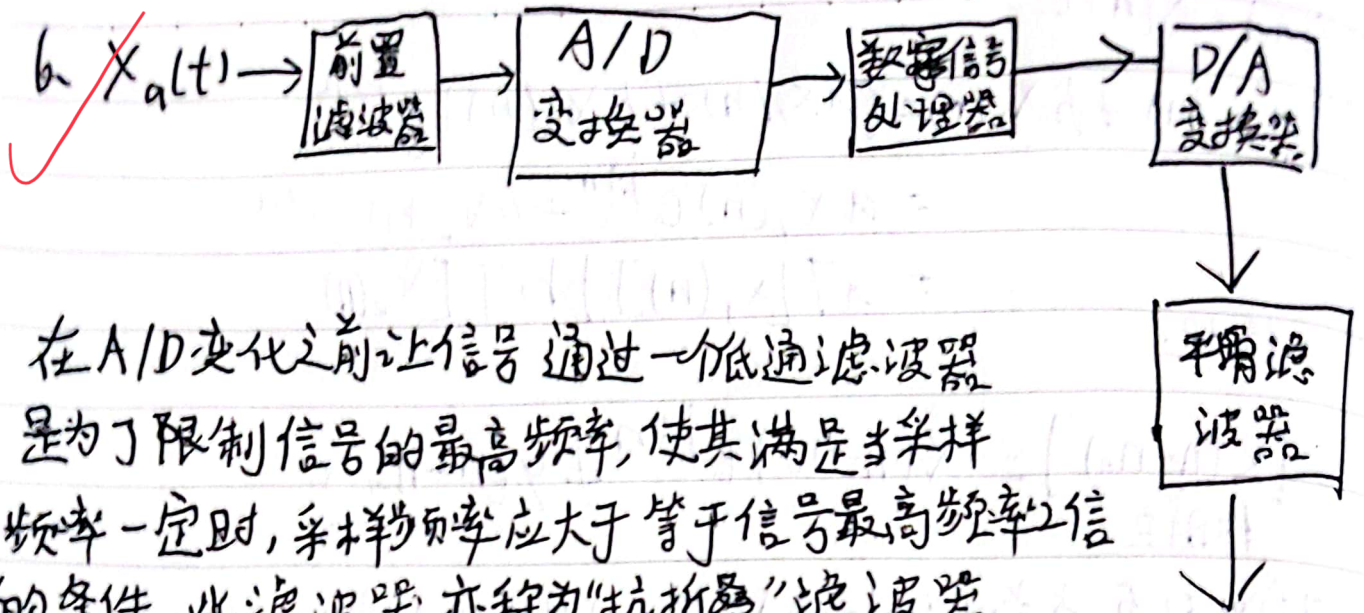 6、 Xa(t)
前置
滤波器
A/D
变换器
数字信号
处理器
D/A
变换器
平滑滤
波器
在A/D变化之前让信号通过一个低通滤波器
是为了限制信号的最高频率,使其满足当采样
频率一定时,采样频率应大于等于信号最高频率2信
的条件 此滤波器亦称为“抗折叠”滤波器